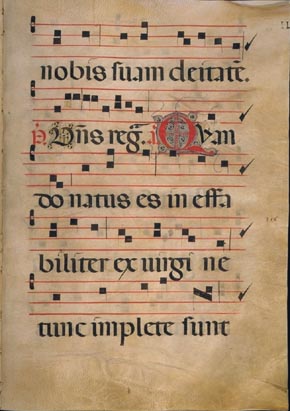 nobis suam deitatē.
Dn̄s reg̃. Quan
do natus es in effa
biliter ex uirgi ne
tunc implete sunt